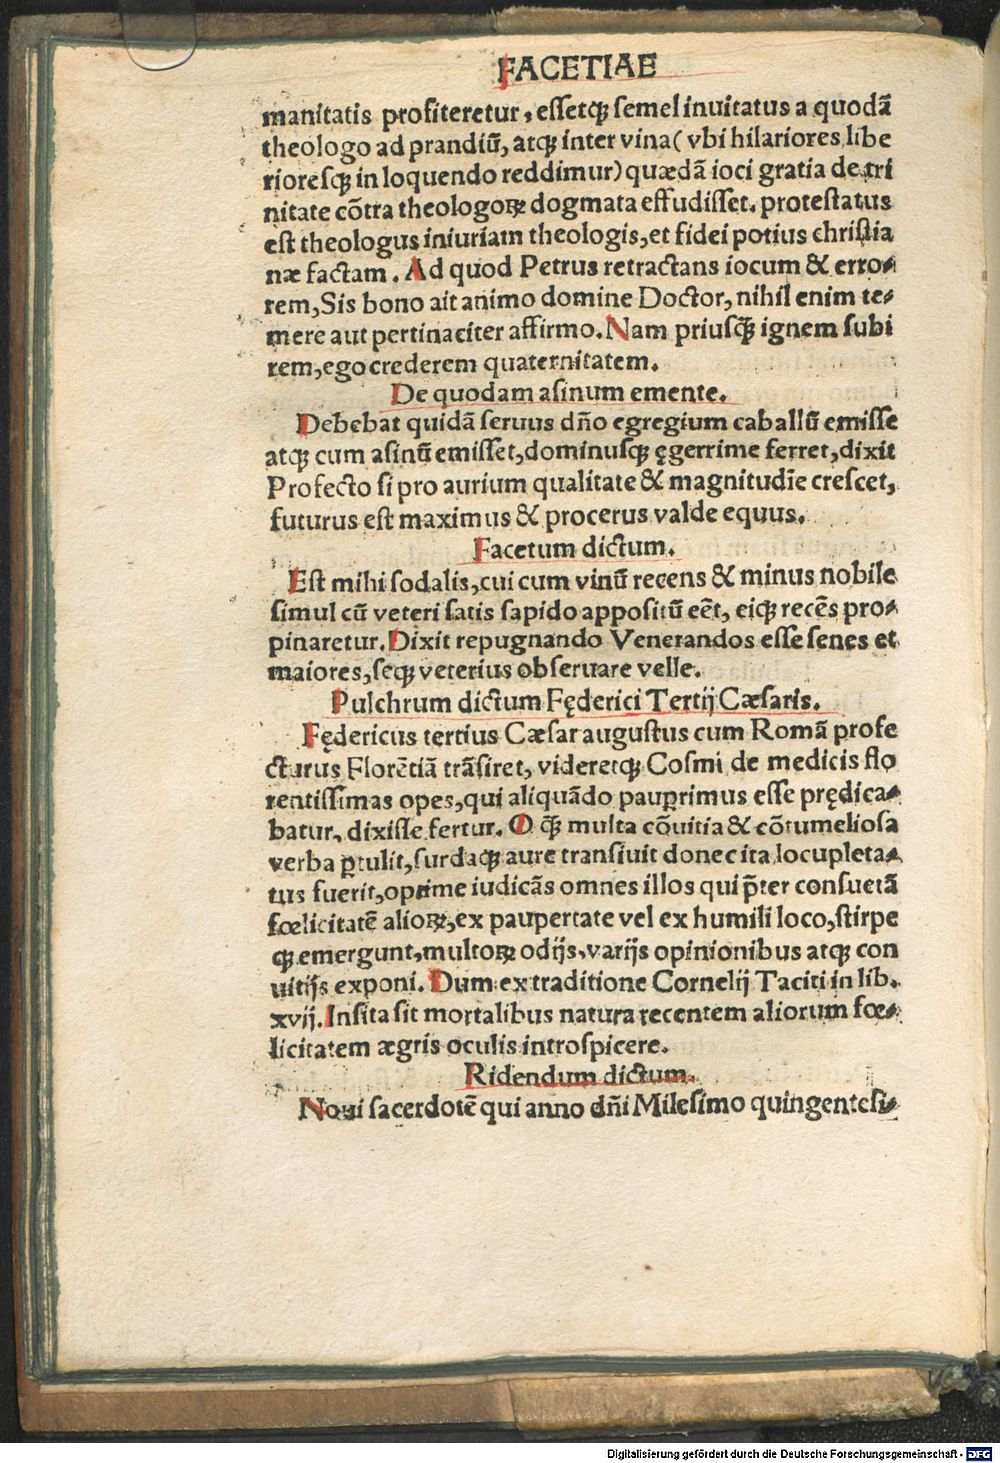 FACETIAE
manitatis profiteretur, eſſetqꝫ ſemel inuitatus a quodã
theologo ad prandiũ, atqꝫ inter vina( vbi hilariores libe
rioreſqꝫ in loquendo reddimur) quædã ioci gratia de tri
nitate cõtra theologoꝝ dogmata effudiſſet. proteſtatus
eſt theologus iniuriam theologis, et fidei potius chriſtia
næ factam. Ad quod Petrus retractans iocum & erro⸗
rem, Sis bono ait animo domine Doctor, nihil enim te⸗
mere aut pertinaciter affirmo. Nam priuſqꝫ ignem ſubi
rem, ego crederem quaternitatem.
De quodam aſinum emente.
Debebat quidã ſeruus dño egregium caballũ emiſſe
atqꝫ cum aſinũ emiſſet, dominuſqꝫ ęgerrime ferret, dixit
Profecto ſi pro aurium qualitate & magnitudĩe creſcet,
futurus eſt maximus & procerus valde equus.
Facetum dictum.
Eſt mihi ſodalis, cui cum vinũ recens & minus nobile
ſimul cũ veteri ſatis ſapido appoſitũ eẽt, eiqꝫ recẽs pro⸗
pinaretur. Dixit repugnando Venerandos eſſe ſenes et
maiores, ſeqꝫ veterius obſeruare velle.
Pulchrum dictum Fęderici Tertij Cæſaris.
Fędericus tertius Cæſar auguſtus cum Romã profe
cturus Florẽtiã trãſiret, videretqꝫ Coſmi de medicis flo
rentiſſimas opes, qui aliquãdo pauꝑrimus eſſe prędica⸗
batur, dixiſſe fertur. O qꝫ multa cõuitia & cõtumelioſa
verba ꝑtulit, ſurdaqꝫ aure tranſiuit donec ita locupleta⸗
tus fuerit, optime iudicãs omnes illos qui p̃ter conſuetã
fœlicitatẽ alioꝝ, ex paupertate vel ex humili loco, ſtirpe
qꝫ emergunt, multoꝝ odijs, varijs opinionibus atqꝫ con
uitijs exponi. Dum ex traditione Cornelij Taciti in lib.
xvij. Inſita ſit mortalibus natura recentem aliorum fœ⸗
licitatem ægris oculis introſpicere.
Ridendum dictum.
Noui ſacerdotẽ qui anno dñi Mileſimo quingenteſi⸗
Digitalisierung gefördert durch die Deutsche Forschungsgemeinschaft - DFG